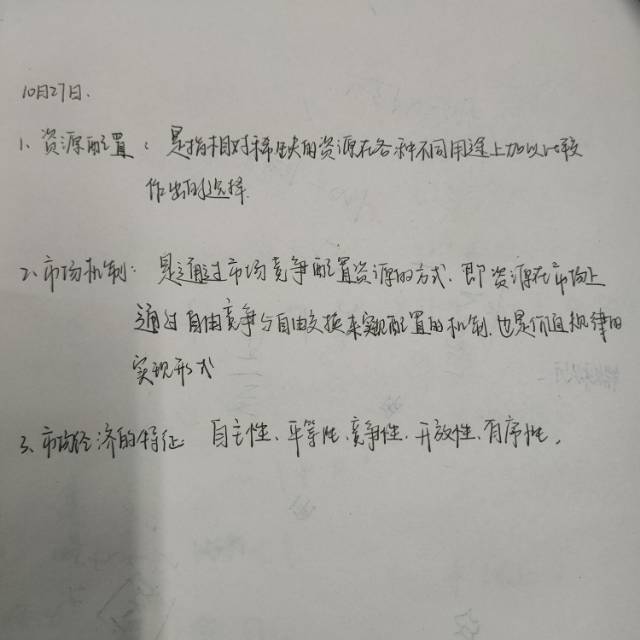 10月27日.
1、资源配置：是指相对稀缺的资源在各种不同用途上加以比较
作出的选择.
2、市场机制：是通过市场竞争配置资源的方式、即资源在市场上
通过自由竞争与自由交换来实现配置的机制,也是价值规律的
实现形式
3、市场经济的特征 自主性、平等性、竞争性、开放性、有序性,